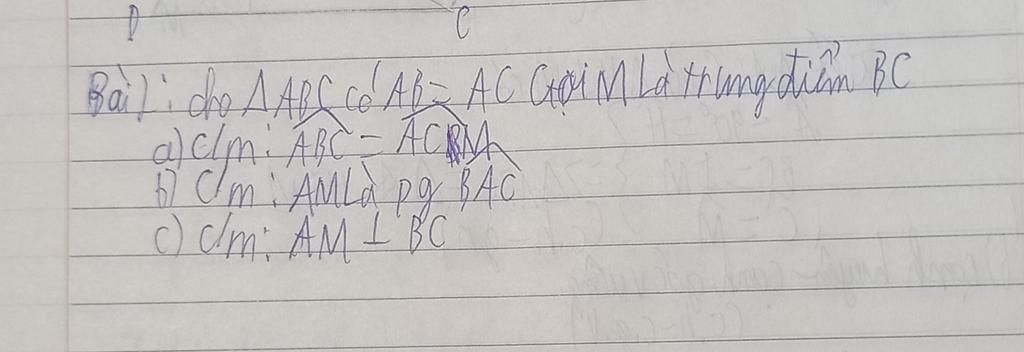 D C
Bài 1: cho ΔABC có AB = AC Gọi M là trung điểm BC
a) C/m: ABC = ACM
b) C/m: AM Là pg BAC
c) C/m: AM ⊥ BC